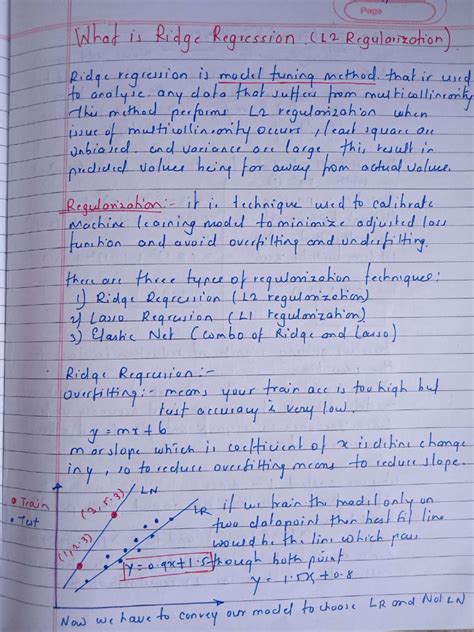 Page
What is Ridge Regression. (L2 Regularization)
Ridge regression is model tuning method that is used
to analyse any data that suffers from multicollinearity
this method performs L2 regularization when
issue of multicollinearity occurs, least square are
unbiased and variance are large this result in
predicted values being far away from actual values.
Regularization:- it is technique used to calibrate
machine learning model to minimize adjusted loss
function and avoid overfitting and underfitting.
there are three types of regularization techniques:
1) Ridge Regression (L2 regularization)
2) Lasso Regression (L1 regularization)
3) Elastic Net (combo of Ridge and Lasso)
Ridge Regression:-
Overfitting:- means your train acc is too high but
test accuracy is very low.
y = mx + b
m or slope which is coefficient of x is define change
in y, so to reduce overfitting means to reduce slope.
Train
Test
(1, 2.3)
(3, 5.3)
LN
LR
y = 0.9x + 1.5
if we train the model only on
two datapoint then best fit line
would be the line which pass
through both point
y = 1.5x + 0.8
Now we have to convey our model to choose LR and Not LN